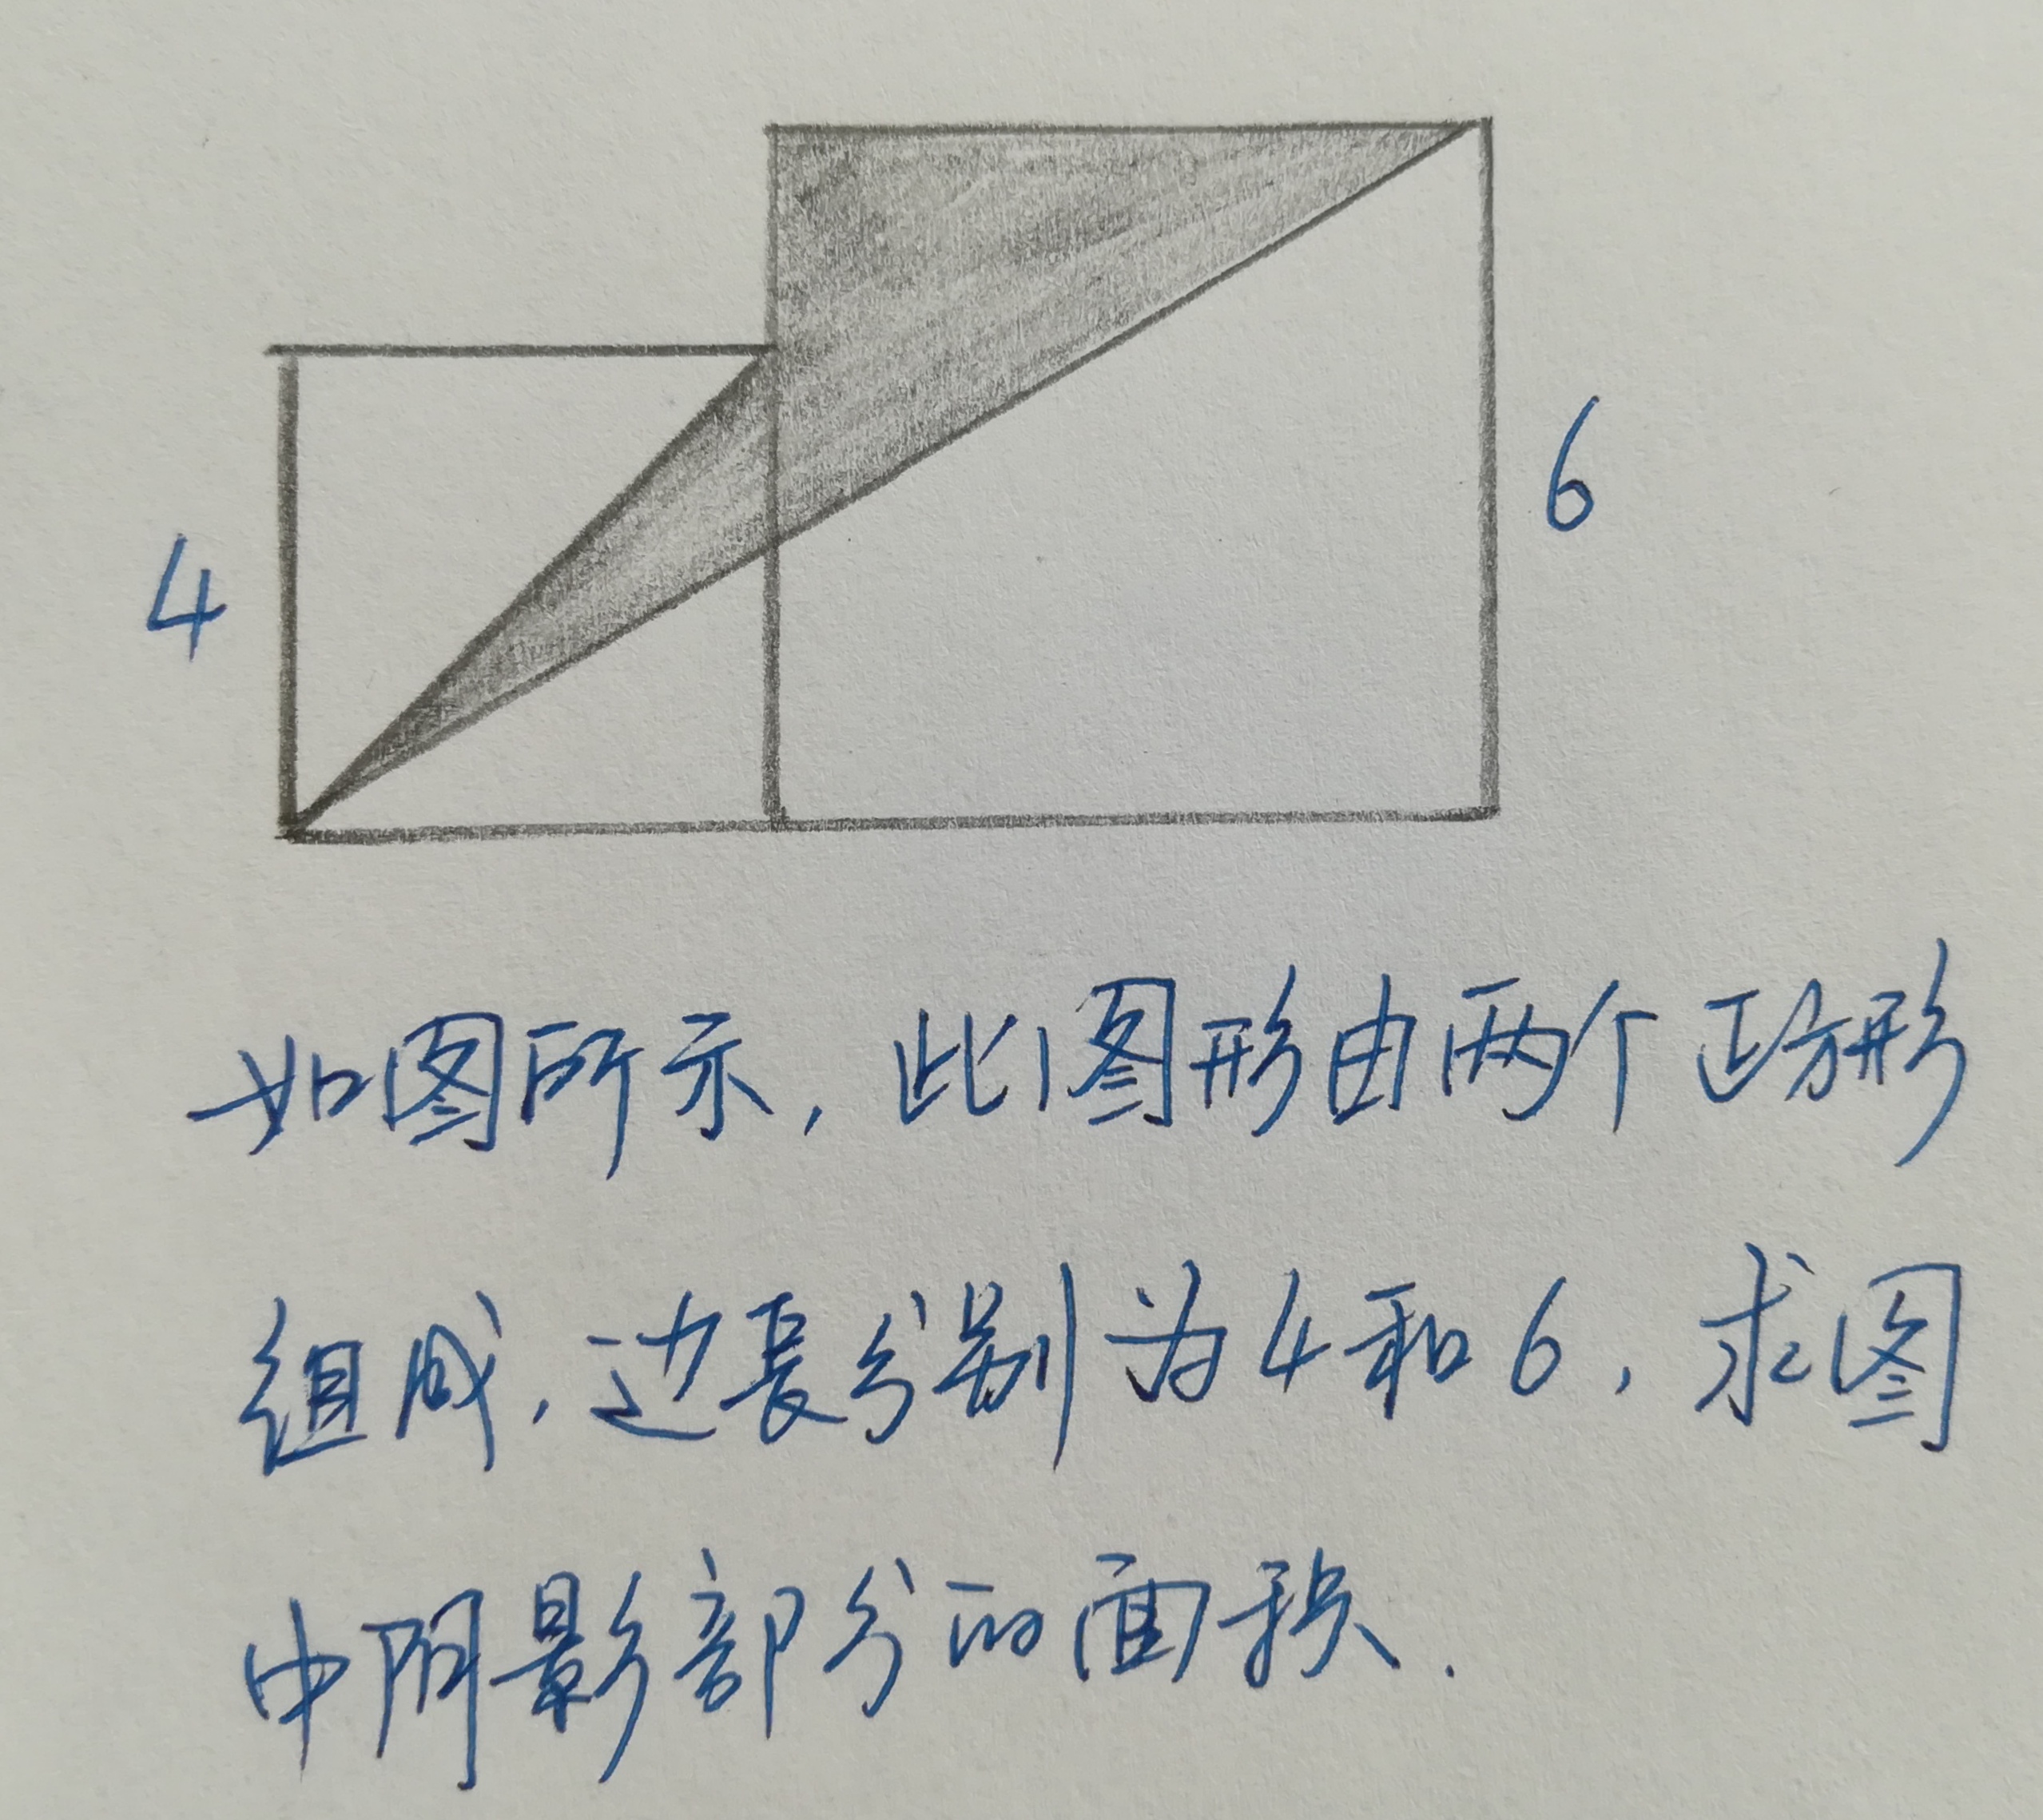 4
6
如图所示,此图形由两个正方形
组成,边长分别为4和6,求图
中阴影部分的面积.